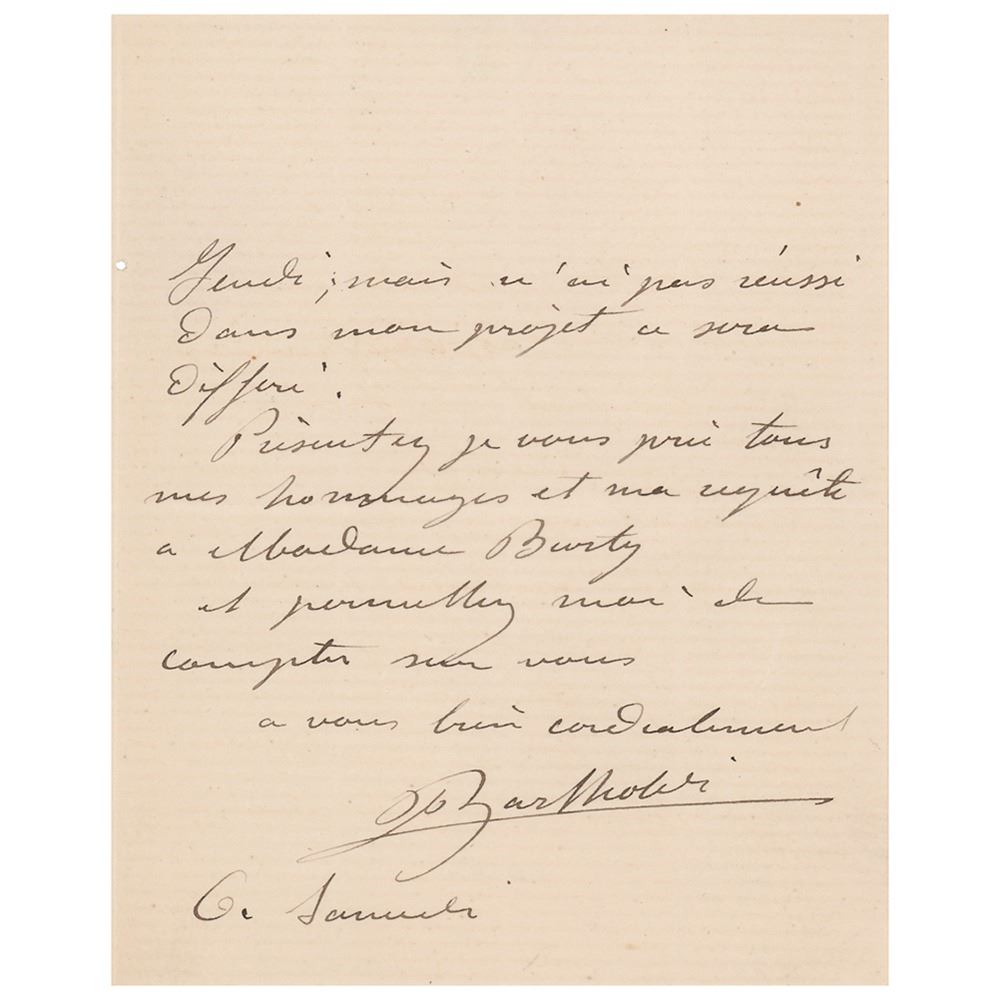 Jeudi; mais n'ai pas réussi
dans mon projet ce sera
différé.
Présentez je vous prie tous
mes hommages et ma requête
a Madame Burty
et permettez moi de
compter sur vous
a vous bien cordialement
Bartholdi
Ce Samedi